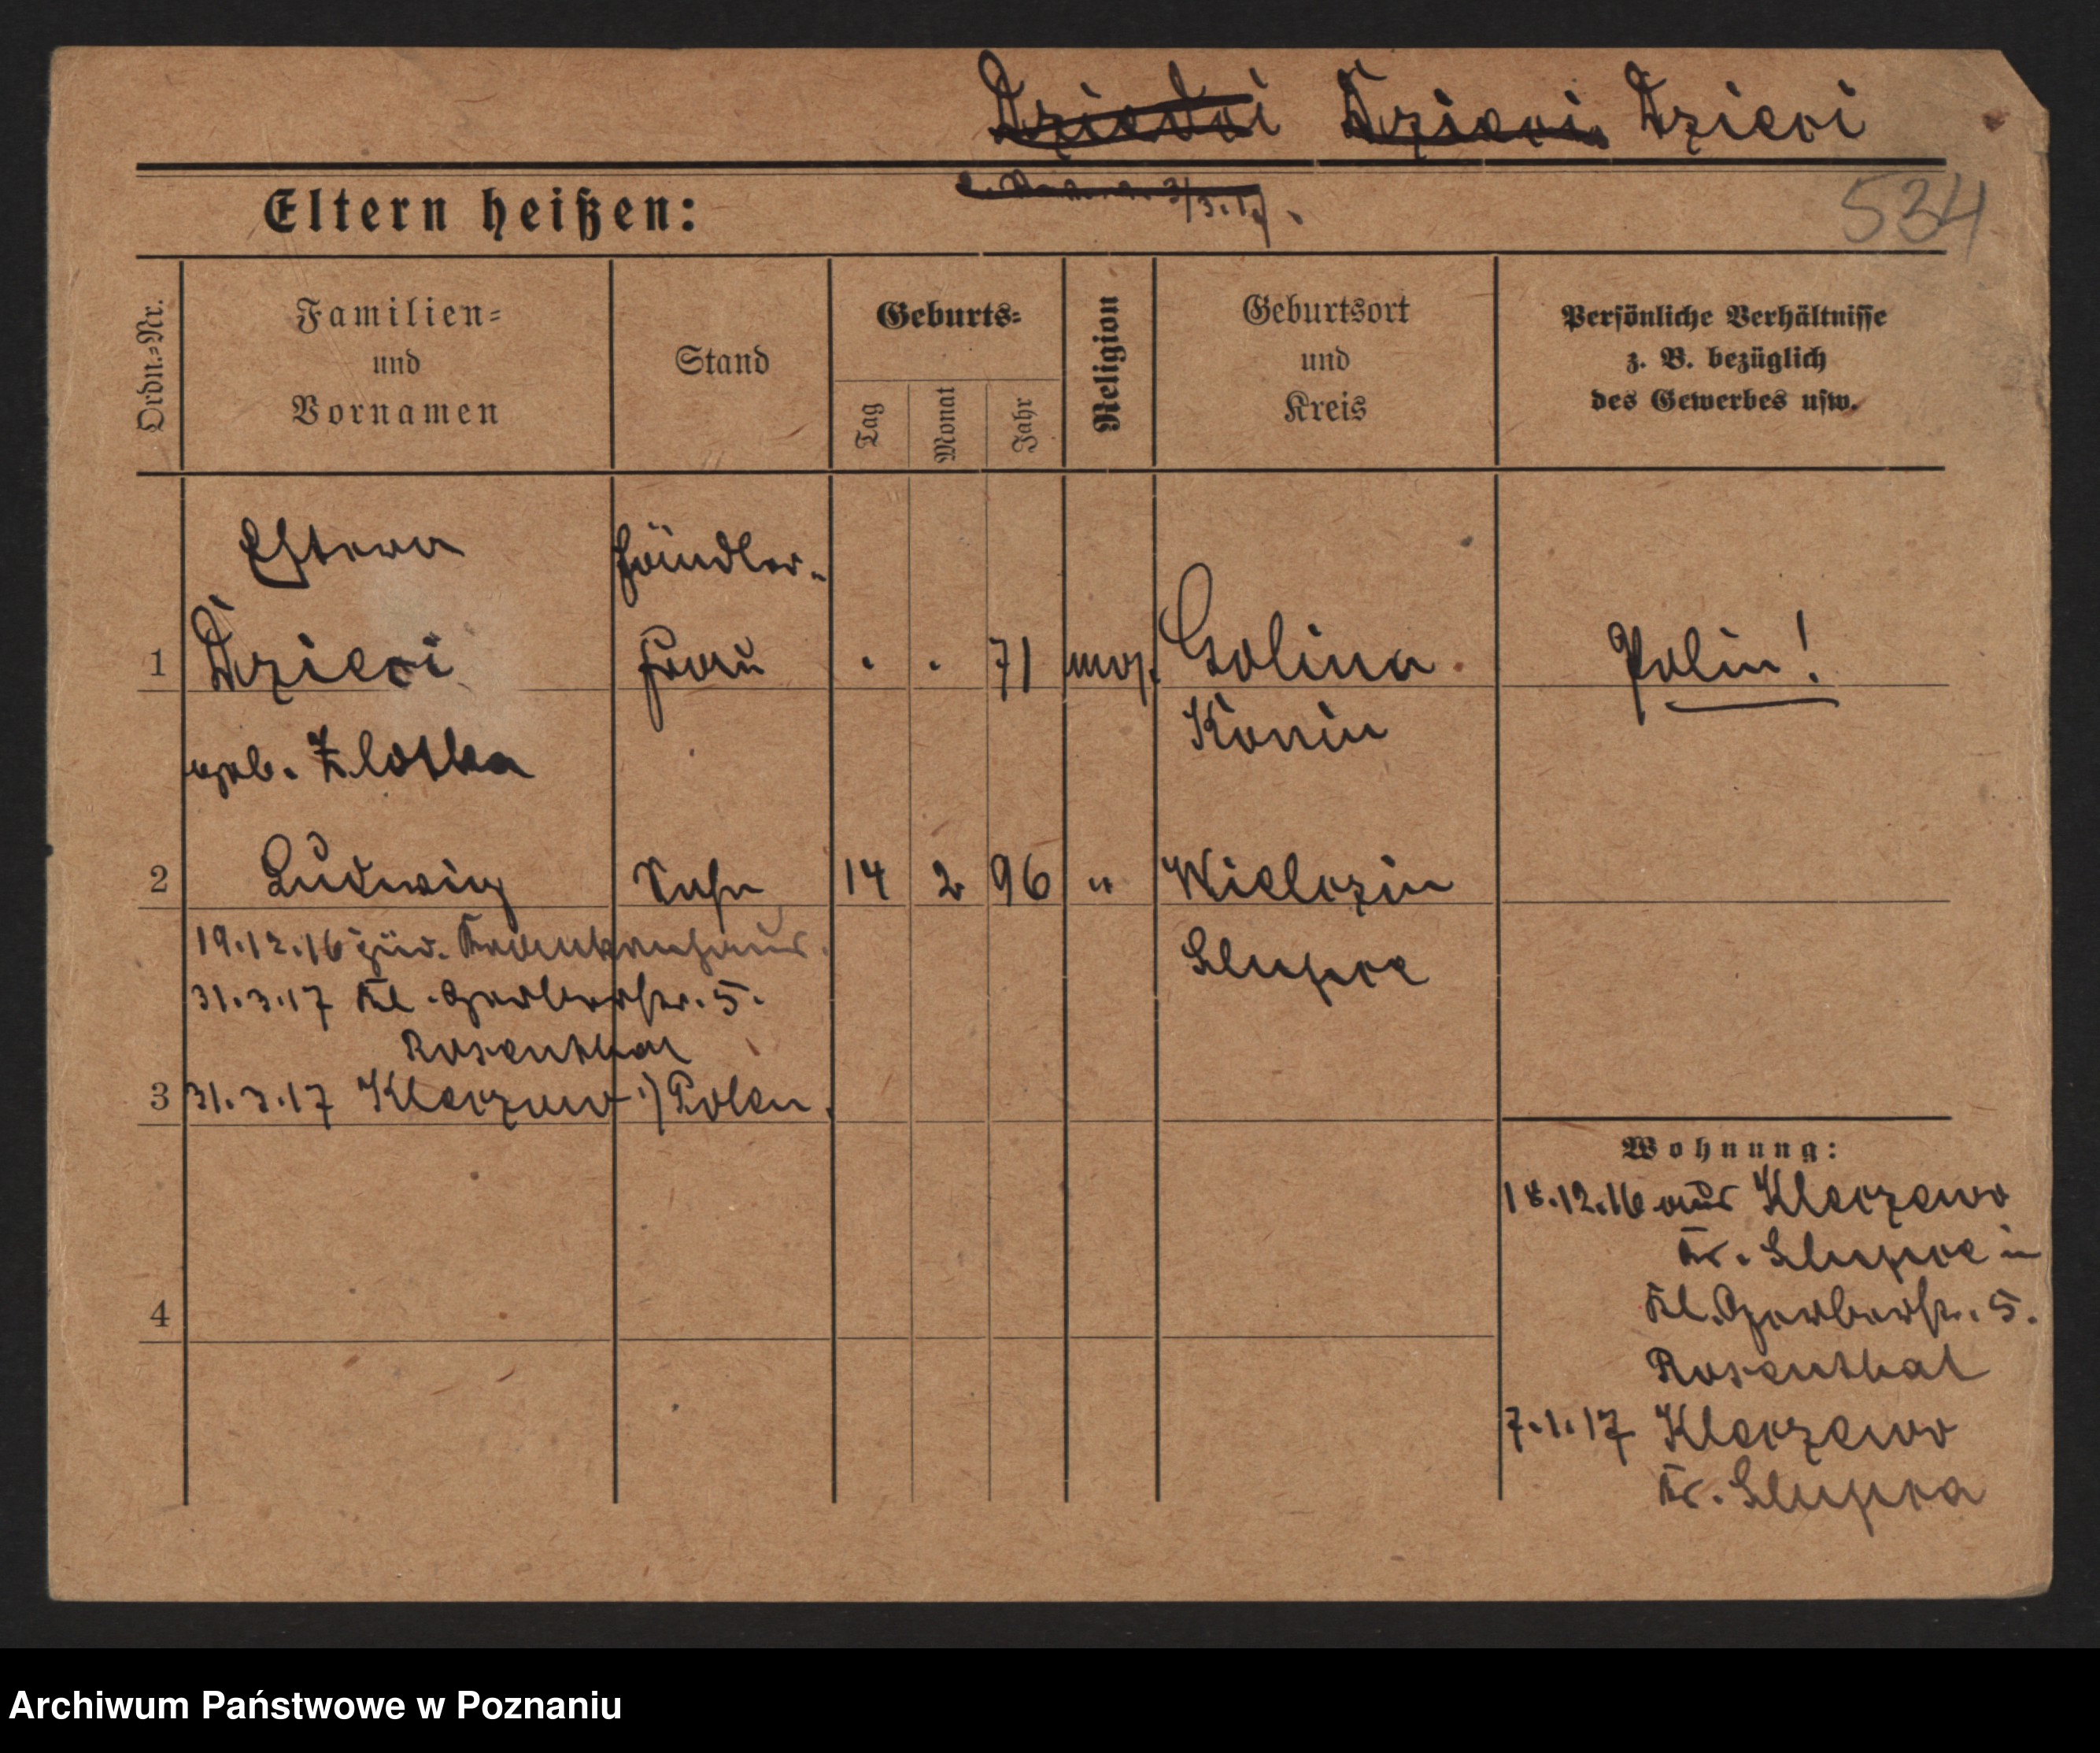 Dzieci
3/3.17.
534
Eltern heißen:
Ordn.-Nr.
Familien-
und
Vornamen
Stand
Geburts-
Tag
Monat
Jahr
Religion
Geburtsort
und
Kreis
Persönliche Verhältnisse
z. B. bezüglich
des Gewerbes usw.
Estera
Händler-
1 Dzieci Frau . . 71 mos. Golina Polin!
geb. Zlotka
Konin
2 Ludwig Sohn 14 2 96 " Wielczin
19.12.16 jüd. Krankenhaus.
Slupce
31.3.17 Kl. Gerberstr. 5.
Rosenthal
3 31.3.17 Kleczewo i/ Polen.
4
Wohnung:
18.12.16 aus Kleczewo
Kr. Slupce in
Kl. Gerberstr. 5.
Rosenthal
7.1.17 Kleczewo
Kr. Slupca
Archiwum Państwowe w Poznaniu